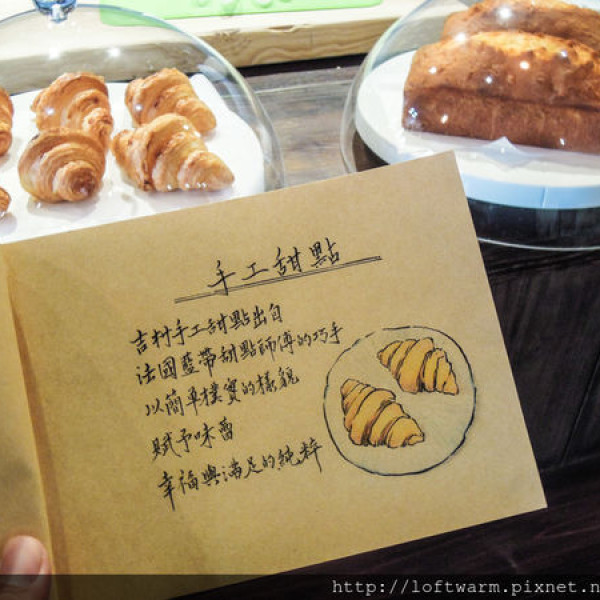 手工甜點
吉材手工甜點出自
法國藍帶甜點師傅的巧手
以簡單樸實的樣貌
賦予味蕾
幸福與滿足的純粹
http://loftwarm.pixnet.n